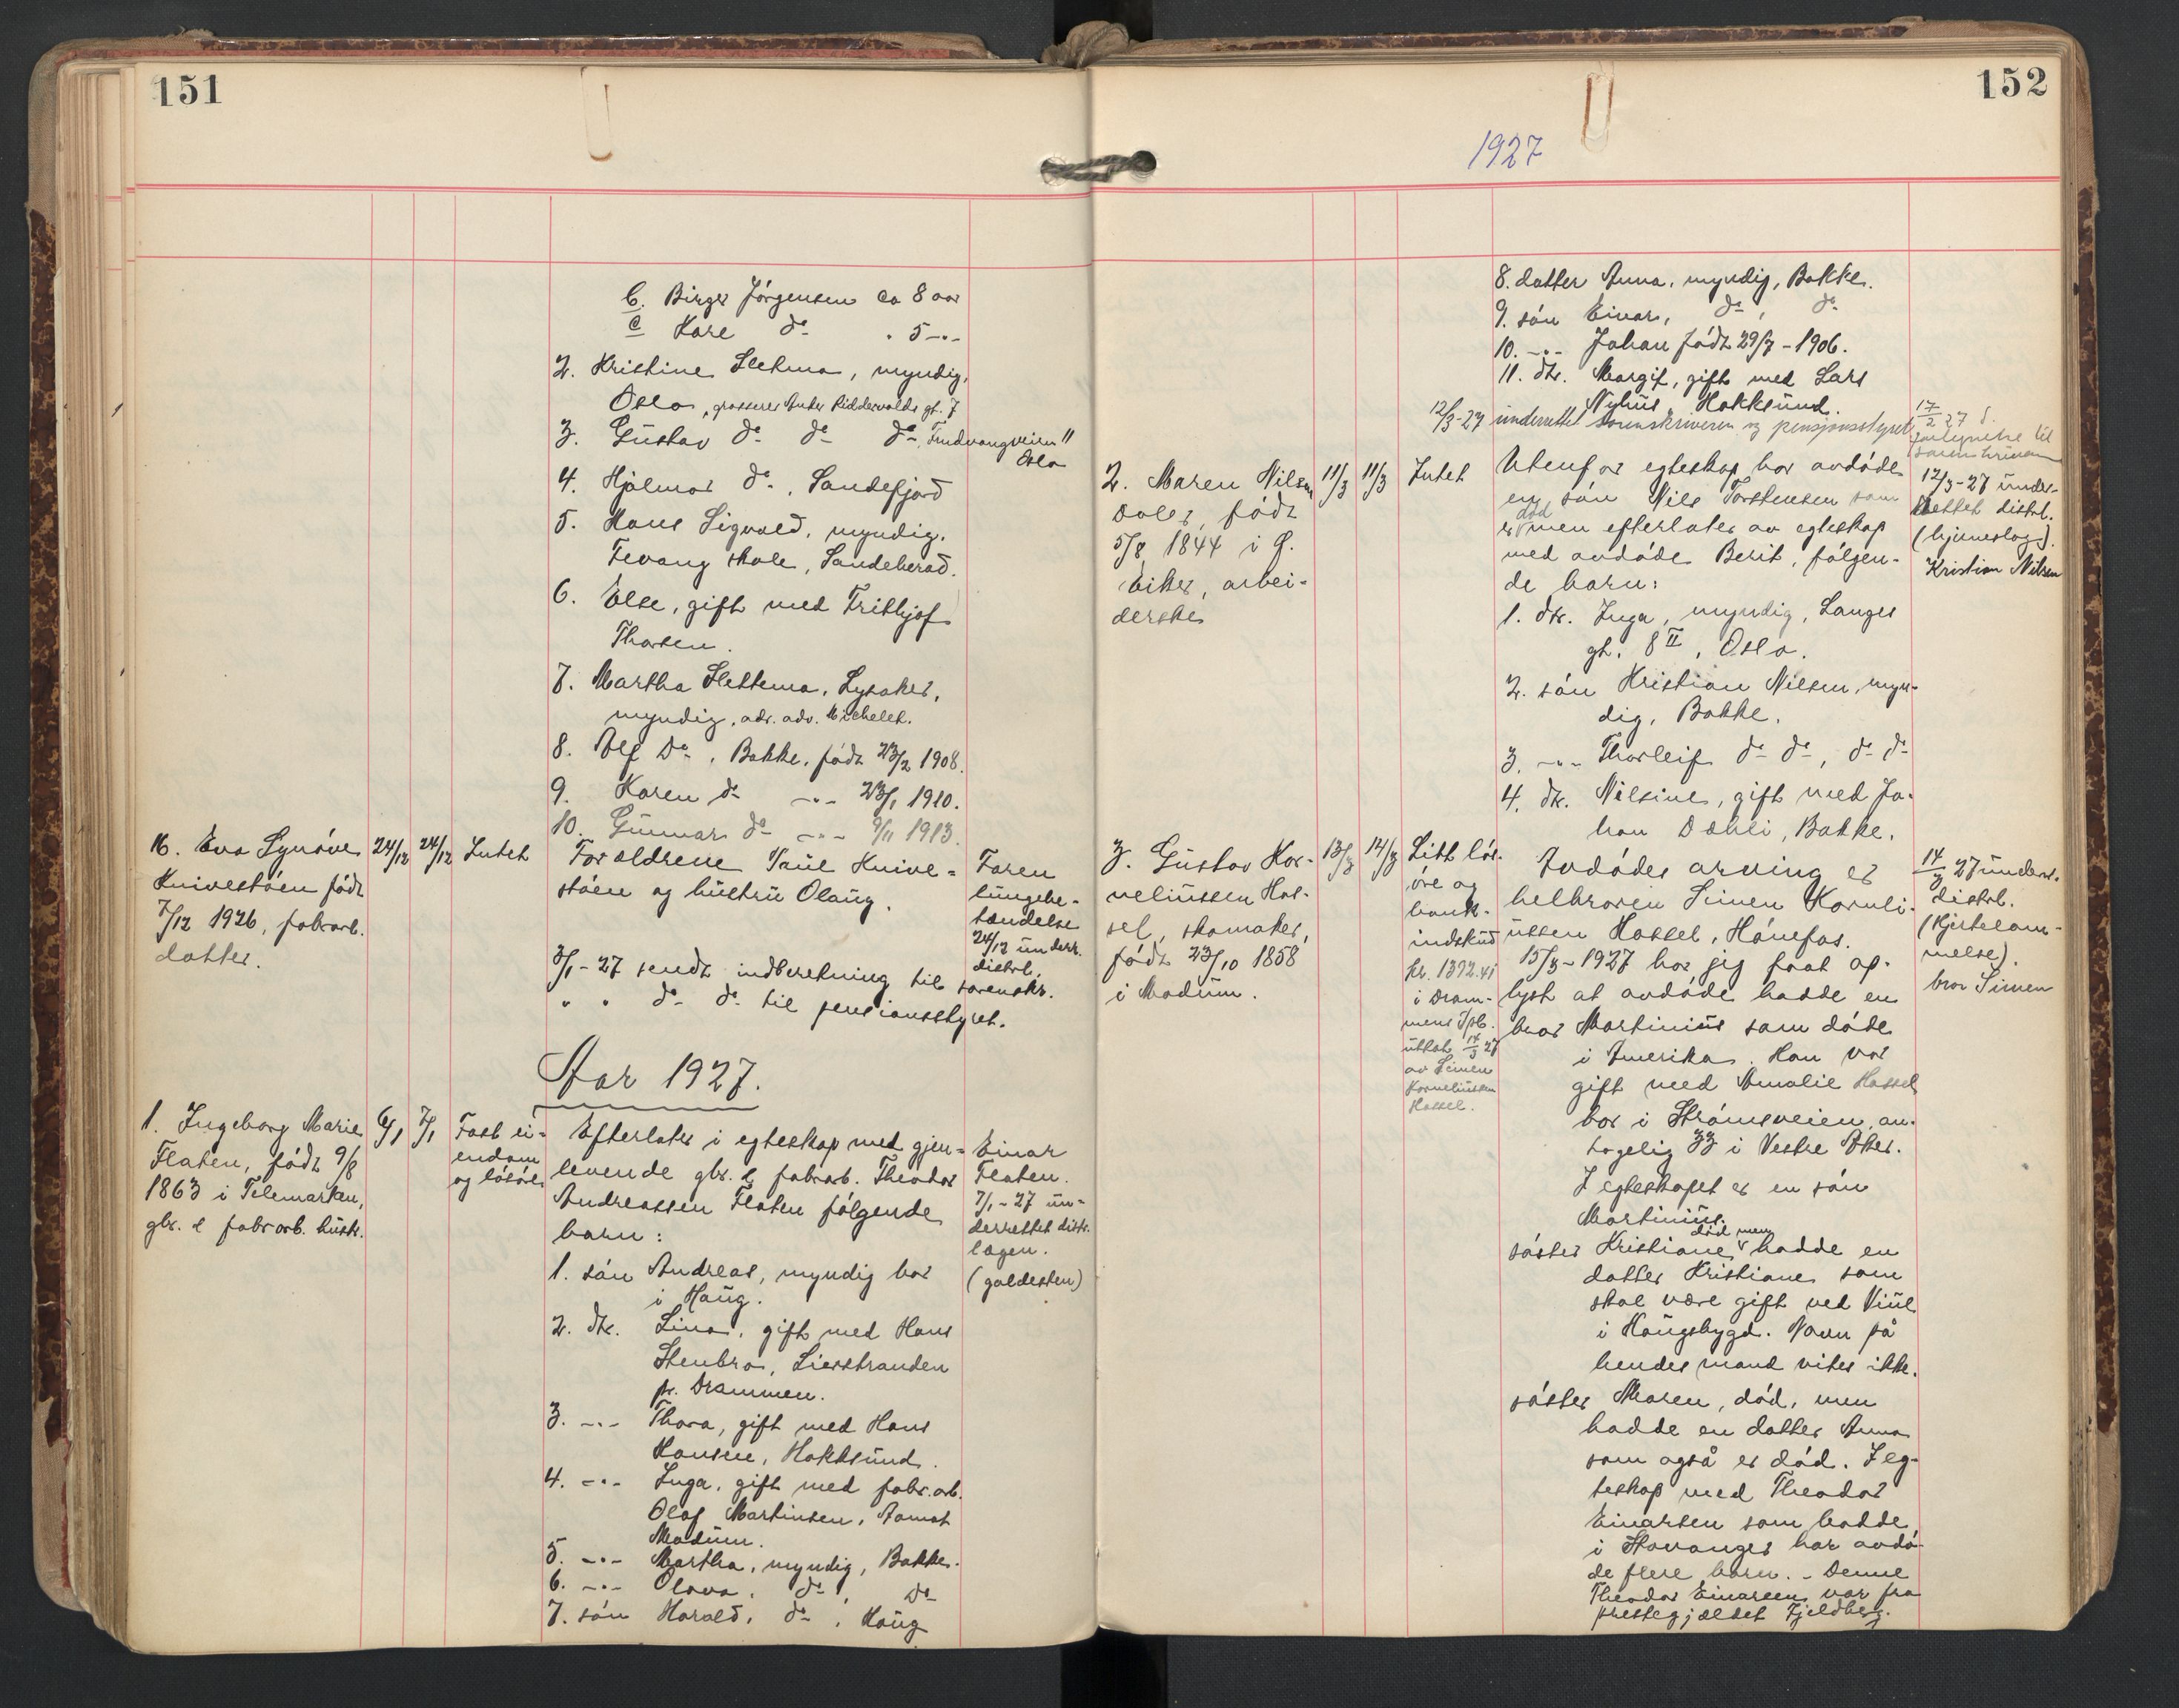 151
b. Birger Jörgensen ca 8 aar
c Kare do " 5 -"-
2. Kristine Sletma, myndig,
Oslo, grosserer Riddervolds gt. 7
3. Gustav do do do, Trudvangveien 11
Oslo
4. Hjalmar do, Sandefjord
5. Hans Sigvald, myndig,
Fevang skole, Sandeherad.
6. Else, gift med Frithjof
Thorsen.
7. Martha Slettema, Lysaker,
myndig, adr. adv. Michelet.
8. Alf Do, Bakke, född 23/2 1908.
9. Karen do -"- 23/1 1910.
10. Gunnar do -"- 9/11 1913.
16. Eva Synöve
Knivestöen född
7/12 1926, fabrarb.
datter.
24/12
24/12
Intet
Forældrene Paul Knive-
stöen og hustru Olaug.
Faren
lungebe-
tændelse
24/12 underr.
distrl.
3/1-27 sendt indberetning til sorenskr.
" " do do til pensionsstyret.
Aar 1927.
1. Ingeborg Marie
Flaten, född 9/8
1863 i Telemarken,
gbr. & fabrarb. hustr.
6/1
7/1
Fast ei-
endom
og lösöre
Efterlater i egteskap med gjen-
levende gbr. & fabrarb. Theodor
Andreassen Flaten fölgende
barn:
Einar
Flaten.
7/1-27 un-
derrettet distr.
lægen.
(galdesten)
1. sön Andreas, myndig bor
i Haug.
2. dtr. Lina, gift med Hans
Stenbro, Lierstranden
pr. Drammen.
3. -"- Thora, gift med Hans
Hansen, Hokksund.
4. -"- Inga, gift med fabr.arb.
Olaf Martinsen, Aamot
Modum.
5. -"- Martha, myndig, Bakke.
6. -"- Olava, do, Do
7. sön Harald, do, Haug
152
1927
8. datter Anna, myndig, Bakke.
9. sön Einar, do, do
10. -"- Johan född 29/7-1906.
11. dtr. Margit, gift med Lars
Nyhus, Hokksund.
12/3-27 underrettet sorenskriveren og pensjonsstyret
17/2 27
til
2. Maren Nilsen
Doler, född
5/8 1844 i Ö.
Eiker, arbei-
derske
11/3
11/3
Intet
Utenfor egteskap har avdöde
en sön Nils Torstensen som
er död men efterlater av egteskap
med avdöde Berit, fölgen-
de barn:
12/3-27 under-
rettet distrl.
(hjerneslag).
Kristian Nilsen
1. dtr. Inga, myndig, Langes
gt. 8 II, Oslo.
2. sön Kristian Nilsen, myn-
dig, Bakke.
3. -"- Thorleif do do, do do
4. dtr. Nilsine, gift med Jo-
han Dæhli, Bakke.
3. Gustav Kor-
neliussen Has-
sel, skomaker,
född 23/10 1858
i Modum.
13/3
14/3
Litt lös-
öre og
bank-
indskud
kr. 1392.41
i Dram-
mens Spb.
uttat 14/3 27
av Simen
Korneliussen
Hassel.
Avdödes arving er
helbroren Simen Korneli-
ussen Hassel, Hönefos.
15/3-1927 har jeg faat op-
lyst at avdöde hadde en
bror Martinius som döde
i Amerika. Han var
gift med Amalie Hassel
bor i Strömsveien, an-
tagelig 33 i Vestre Aker.
I egteskapet er en sön
Martinius.
14/3 27 underr.
distrl.
(Hjertelam-
melse).
bror Simen
söster Kristiane död men hadde en
datter Kristiane som
skal være gift ved Viul
i Haugsbygd. Navn på
hendes mand vites ikke.
söster Maren, död, men
hadde en datter Anna
som også er död. I eg-
teskap med Theodor
Einarsen som bodde
i Stavanger har avdö-
de flere barn. - Denne
Theodor Einarsen var fra
prestegjældet Fjeldberg.